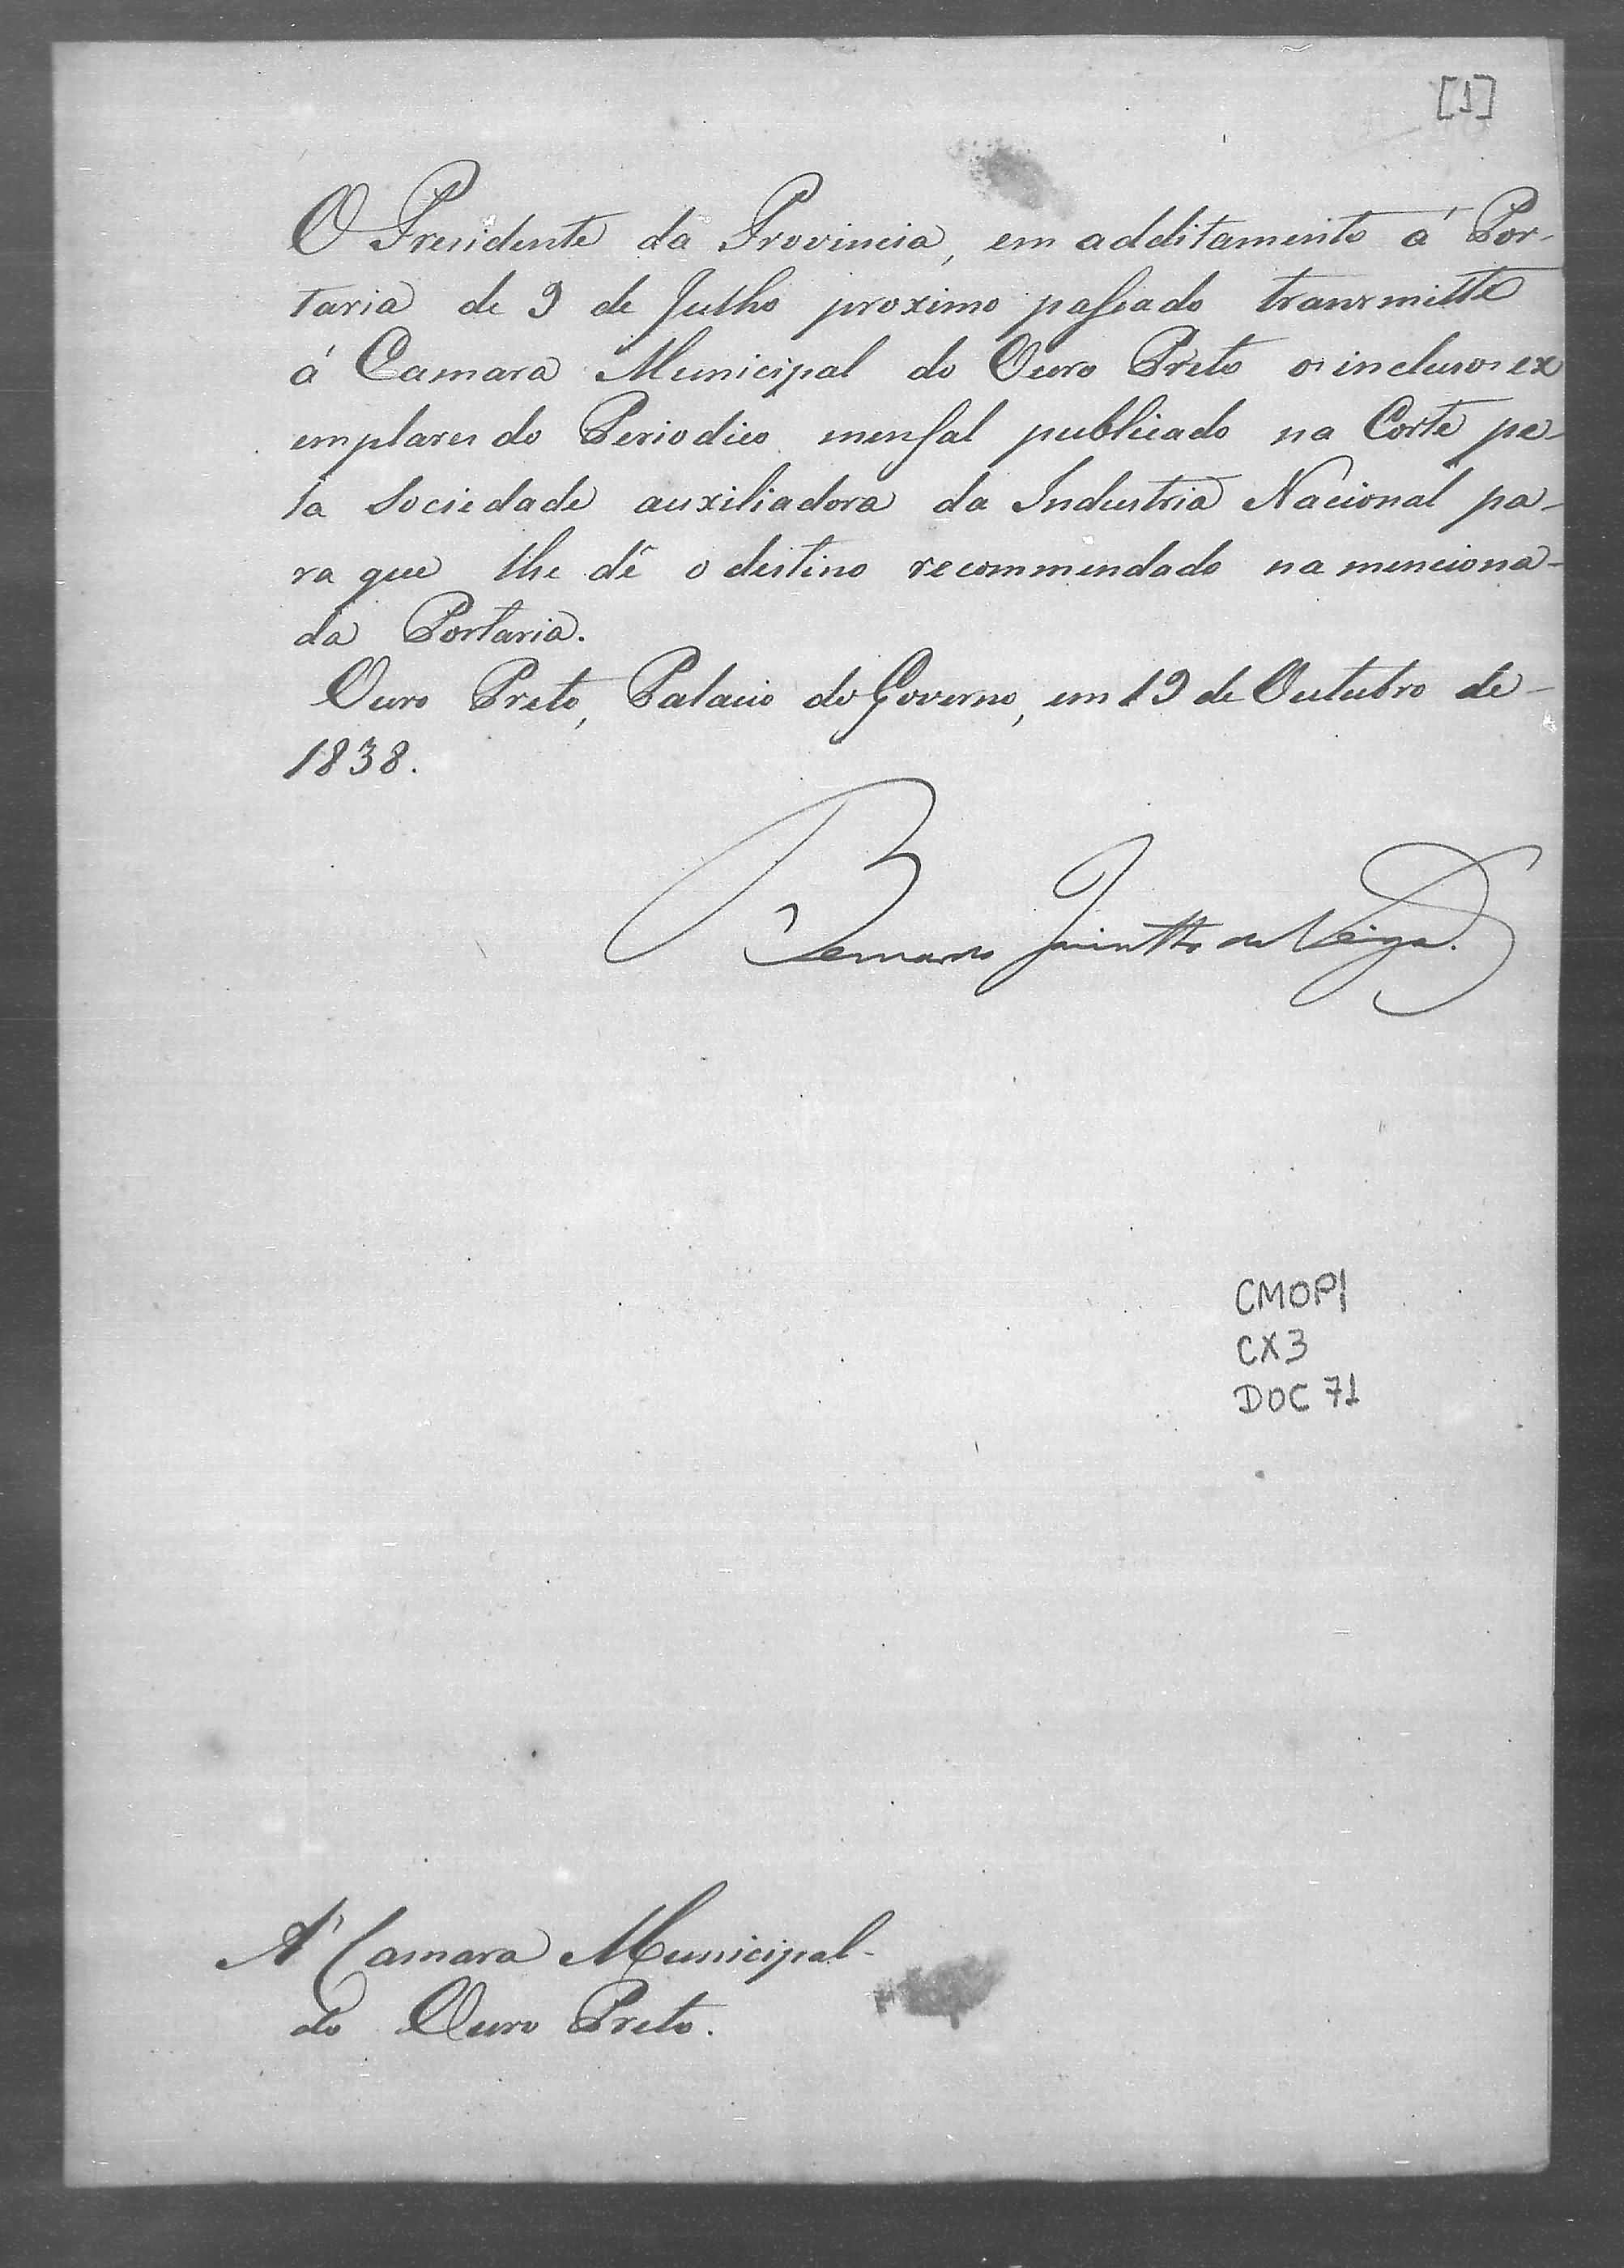 [1]
O Presidente da Provincia, em additamento á Por-
taria de 9 de Julho proximo passado transmitte
á Camara Municipal do Ouro Preto os inclusos ex
emplares do Periodico mensal publicado na Corte pe-
la Sociedade auxiliadora da Industria Nacional pa-
ra que lhe dê o destino recommendado na menciona-
da Portaria.
Ouro Preto, Palacio do Governo, em 19 de Outubro de
1838.
Bernardo Jacintho da Veiga.
CMOP1
CX3
DOC 71
A' Camara Municipal
do Ouro Preto.